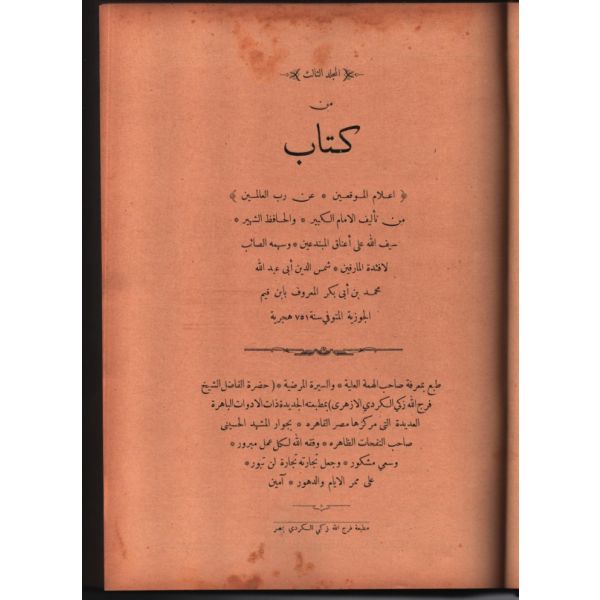 المجلد الثالث
من
كتاب
﴿ اعلام الموقعين * عن رب العالمين ﴾
من تأليف الامام الكبير * والحافظ الشهير *
سيف الله على أعناق المبتدعين * وسهمه الصائب
لافئدة المارقين * شمس الدين أبى عبد الله
محمد بن أبى بكر المعروف بابن قيم
الجوزية المتوفي سنة ٧٥١ هجرية
طبع بمعرفة صاحب الهمة العلية * والسيرة المرضية * (حضرة الفاضل الشيخ
فرج الله زكى الكردي الازهرى) بمطبعته الجديدة ذات الادوات الباهرة
العديدة التى مركزها مصر القاهره * بجوار المشهد الحسينى
صاحب النفحات الظاهره * وفقه الله لكل عمل مبرور *
وسعي مشكور * وجعل تجارته تجارة لن تبور *
على ممر الايام والدهور * آمين
مطبعة فرج الله زكي الكردي بمصر